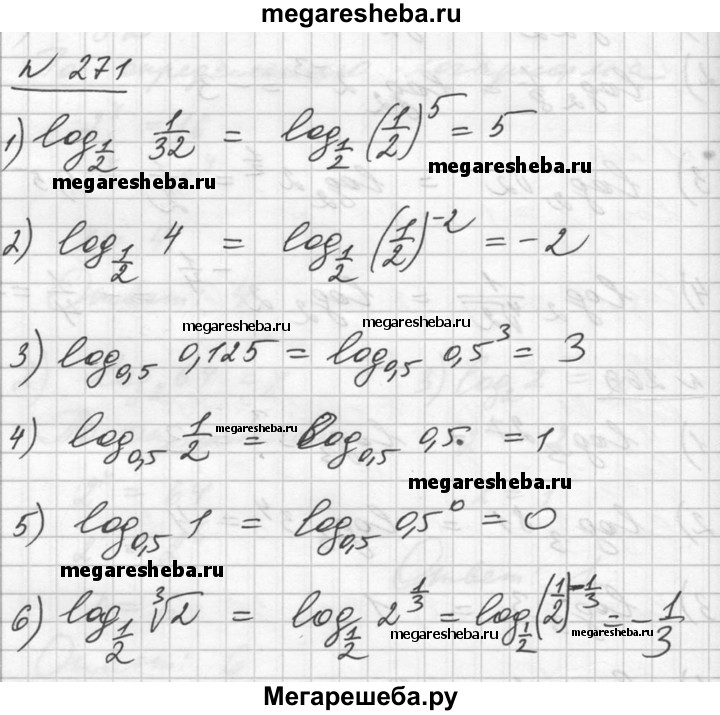 megaresheba.ru
№ 271
1) log_{1/2} 1/32 = log_{1/2} (1/2)^5 = 5
megaresheba.ru
megaresheba.ru
2) log_{1/2} 4 = log_{1/2} (1/2)^{-2} = -2
megaresheba.ru megaresheba.ru
3) log_{0,5} 0,125 = log_{0,5} 0,5^3 = 3
4) log_{0,5} 1/2 = log_{0,5} 0,5 = 1
megaresheba.ru
megaresheba.ru
5) log_{0,5} 1 = log_{0,5} 0,5^0 = 0
megaresheba.ru
6) log_{1/2} ∛2 = log_{1/2} 2^{1/3} = log_{1/2} (1/2)^{-1/3} = -1/3
megaresheba.ru
megaresheba.ru
Мегарешеба.ру